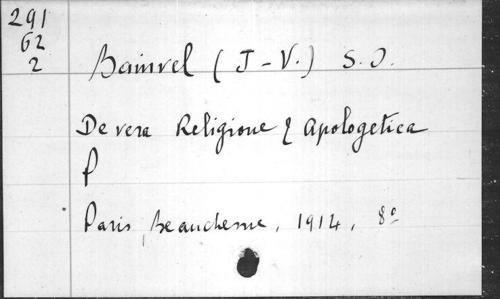 291
62
2
Bainvel (J-V.) S.J.
De vera Religione & Apologetica
P
Paris, Beauchesne, 1914, 8º